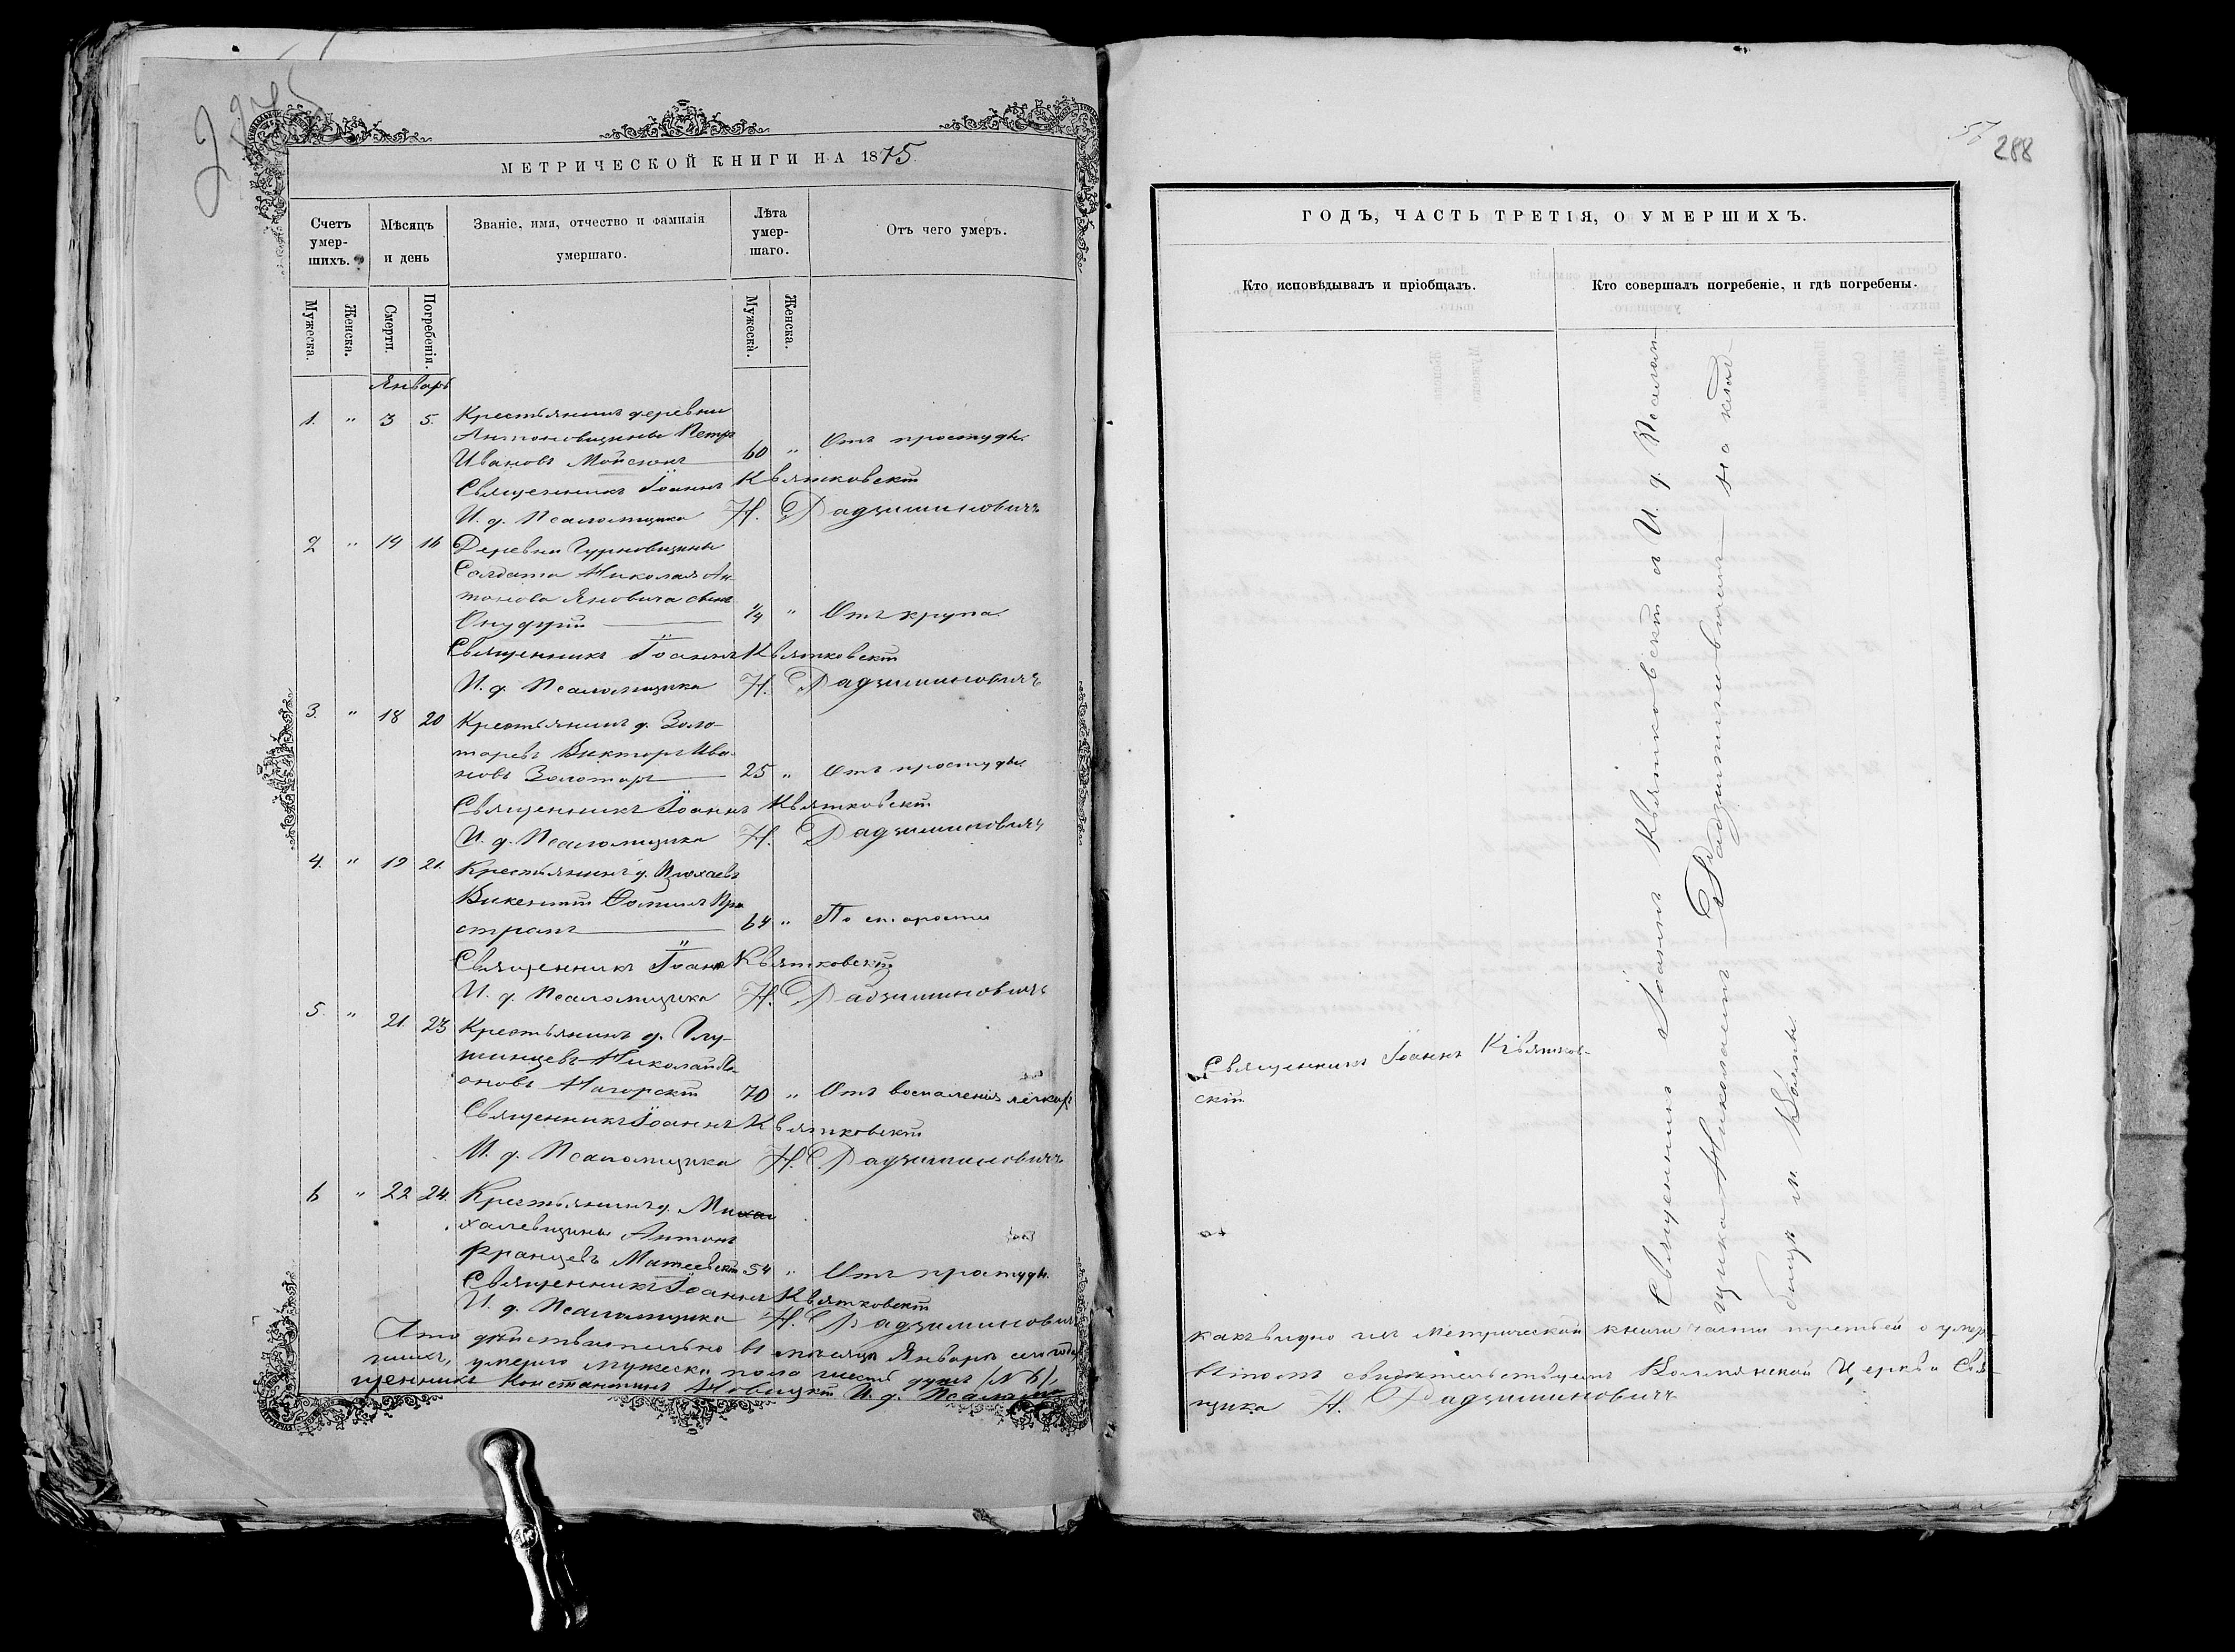 МЕТРИЧЕСКОЙ КНИГИ НА 1875.
Счетъ умер-шихъ.
Мѣсяцъ и день
Званіе, имя, отчество и фамилія умершаго.
Лѣта умер-шаго.
Отъ чего умеръ.
Мужеска.
Женска.
Смерти.
Погребенія.
Мужеска.
Женска.
Январь
1. " 3 5. Крестьянинъ деревни
Антоновщины Петръ
Ивановъ 60 " Отъ простуды.
Священникъ Іоаннъ Квятковскій
И. д. Псаломщика Н. Радзиминовичъ
2 " 14 16 Деревни
Солдата Николая Ан-
тонова Яновича сынъ
Онуфрій 1/4 " Отъ крупа.
Священникъ Іоаннъ Квятковскій
И. д. Псаломщика Н. Радзиминовичъ
3. " 18 20 Крестьянинъ д. Золо-
таревъ Викторъ Ива-
новъ Золотаръ 25 " Отъ простуды
Священникъ Іоаннъ Квятковскій
И. д. Псаломщика Н. Радзиминовичъ
4. " 19 21. Крестьянинъ д.
Викентій Фоминъ
64 " По старости
Священникъ Іоаннъ Квятковскій
И. д. Псаломщика Н. Радзиминовичъ
5. " 21. 23 Крестьянинъ д. Глу-
шинцевъ Николай
Нагорскій 70 " Отъ воспаленія легкихъ
Священникъ Іоаннъ Квятковскій
И. д. Псаломщика Н. Радзиминовичъ
6 " 22 24. Крестьянинъ д. Ми
халевщины Антонъ
Францевъ Матеевскій 54 " Отъ простуды.
Священникъ Іоаннъ Квятковскій
И. д. Псаломщика Н. Радзиминовичъ
Что дѣйствительно въ мѣсяцѣ Январѣ сего года
умерло мужеска пола шесть душъ (№ 6),
щенникъ Константинъ Новицкій И. д. Псалом
57
288
ГОДЪ, ЧАСТЬ ТРЕТІЯ, О УМЕРШИХЪ.
Кто исповѣдывалъ и пріобщалъ.
Кто совершалъ погребеніе, и гдѣ погребены.
Священникъ Іоаннъ Квятков-
скій
Священникъ Іоаннъ Квятковскій съ И. д. Псалом-
щика Николаемъ Радзиминовичемъ на клад-
бищѣ м. Волмы.
какъ видно изъ Метрической книги части третьей о умер-
въ томъ свидѣтельствуемъ Волмянской Церкви Свя-
щика Н. Радзиминовичъ